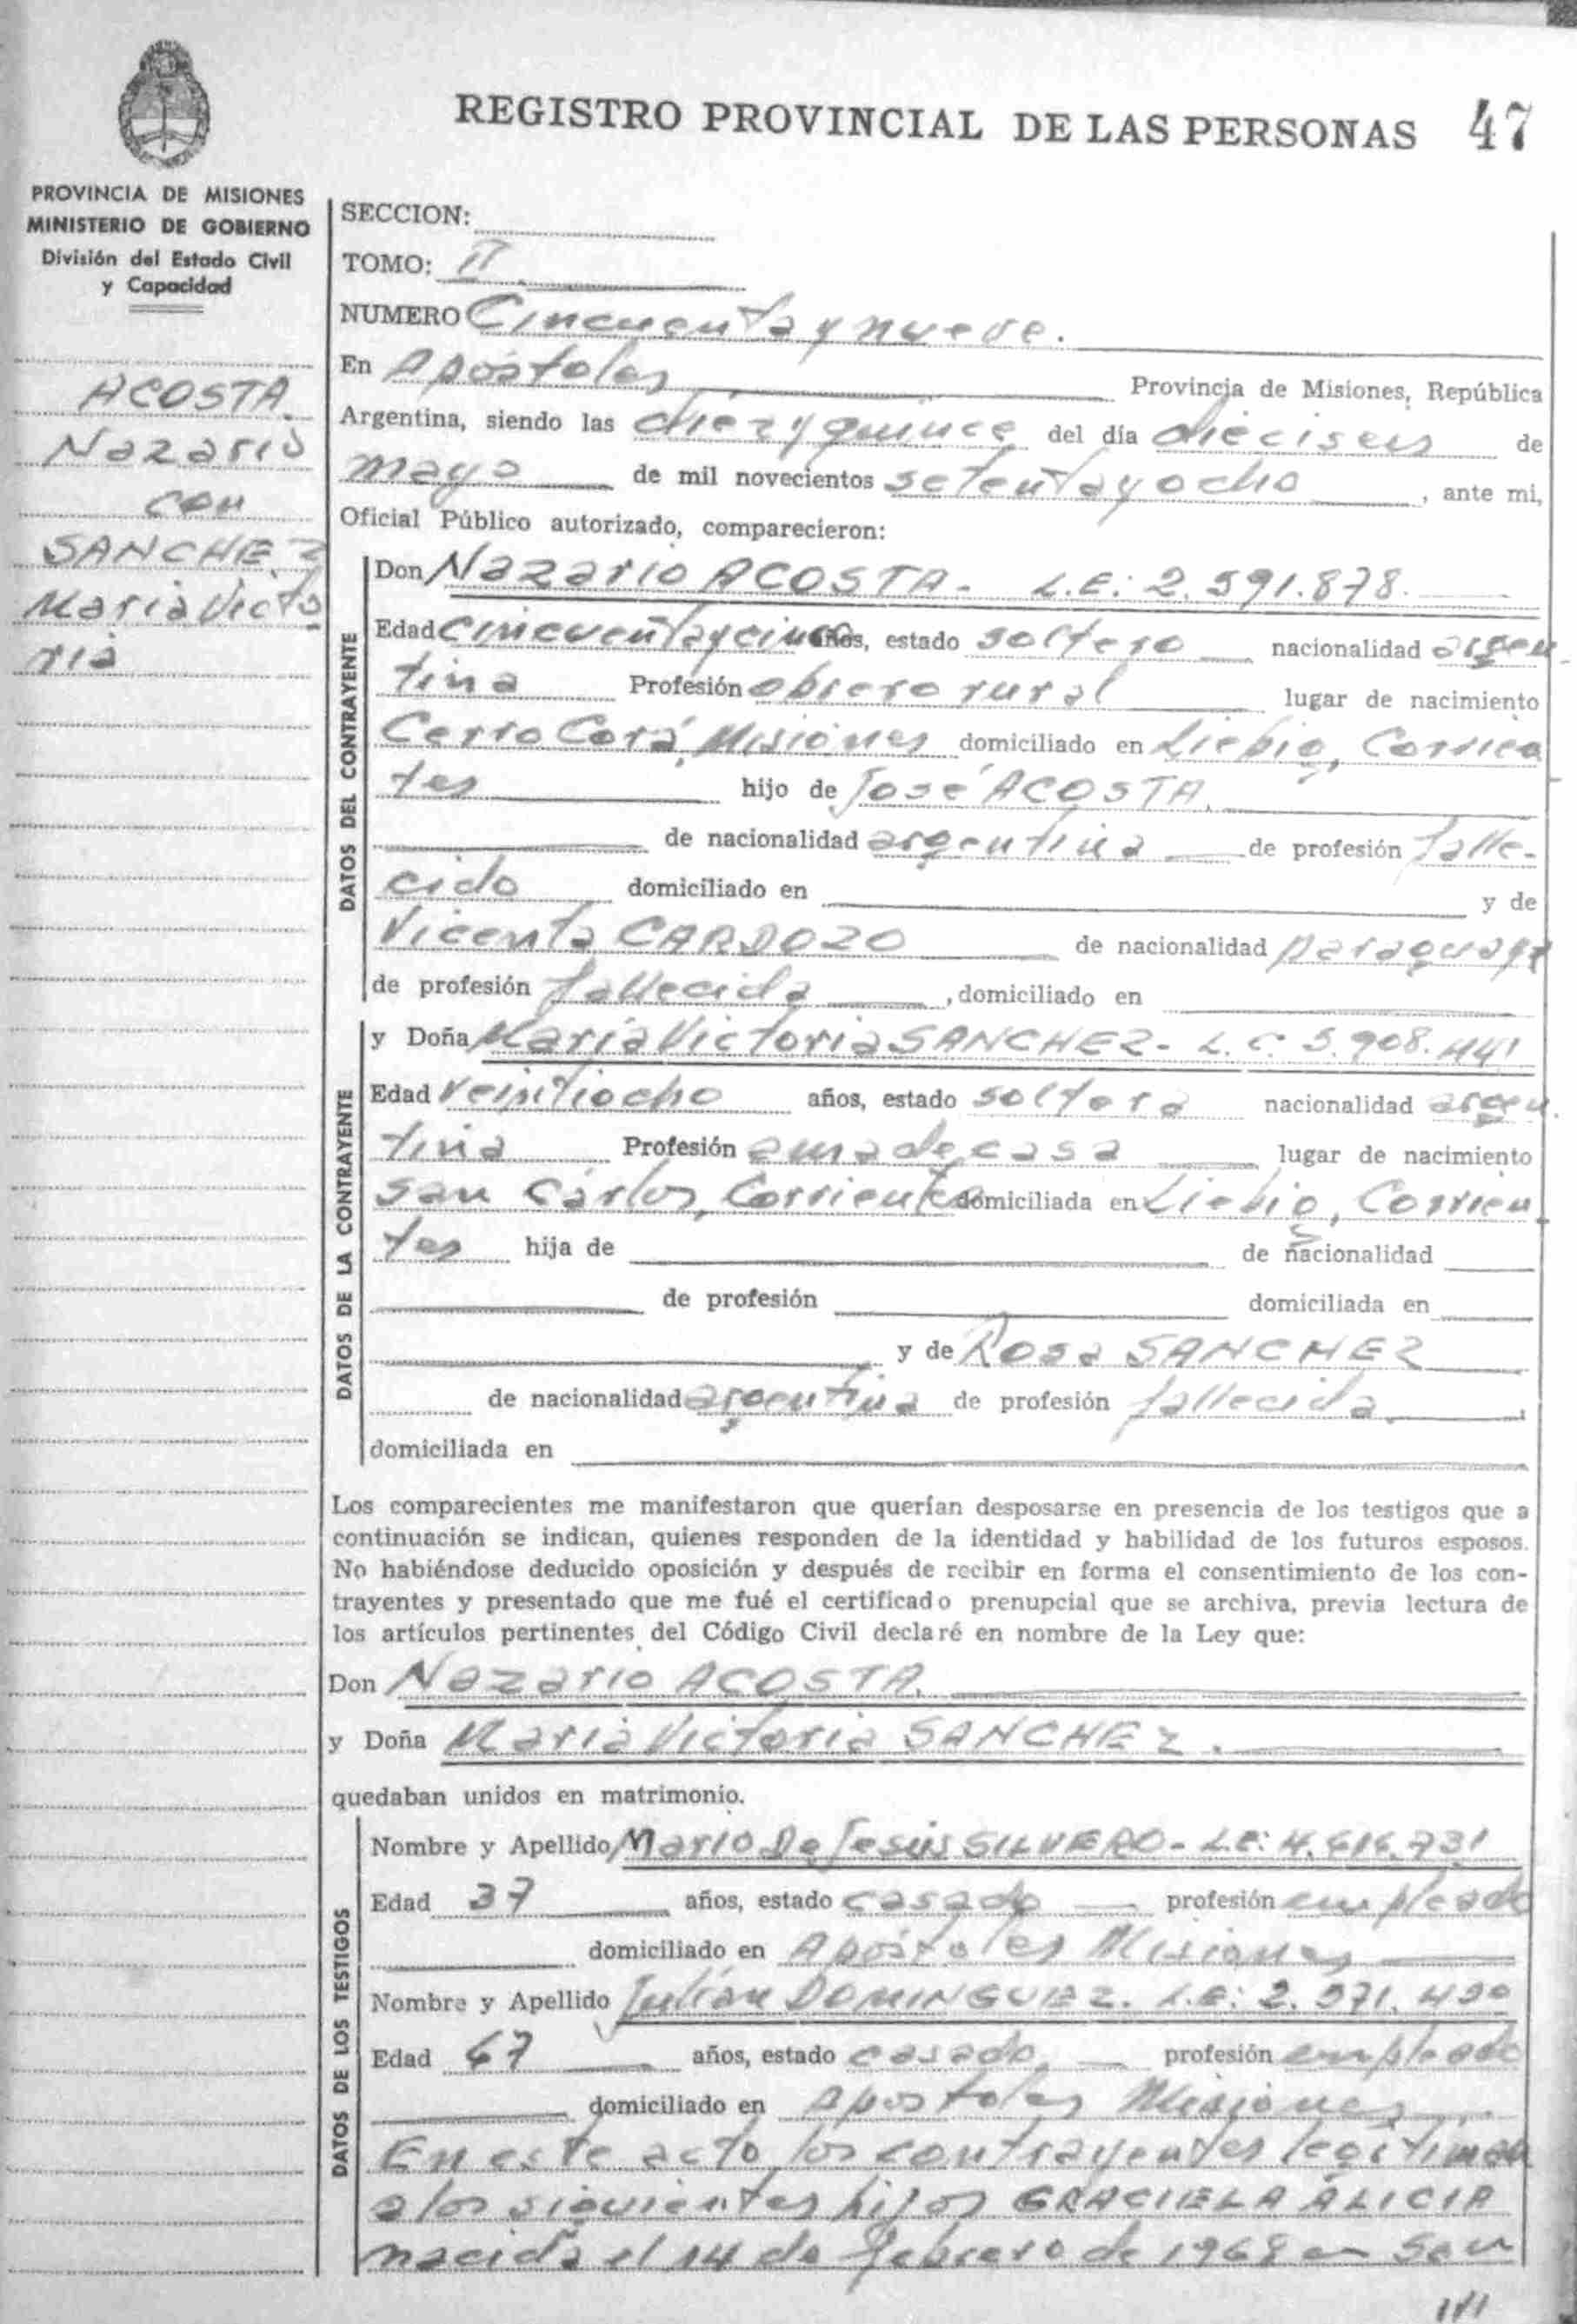 REGISTRO PROVINCIAL DE LAS PERSONAS 47
PROVINCIA DE MISIONES
MINISTERIO DE GOBIERNO
División del Estado Civil
y Capacidad
ACOSTA
Nazario
con
SANCHEZ
Maria Victo
ria
SECCION:
TOMO: II
NUMERO Cincuenta y nueve.
En Apóstoles Provincia de Misiones, República
Argentina, siendo las diez y quince del día dieciseis de
mayo de mil novecientos setenta y ocho, ante mi,
Oficial Público autorizado, comparecieron:
DATOS DEL CONTRAYENTE
Don Nazario ACOSTA - L.E: 2.591.878.
Edad cincuenta y cinco años, estado soltero nacionalidad argen
tina Profesión obrero rural lugar de nacimiento
Cerro Corá, Misiones domiciliado en Liebig, Corrien
tes hijo de José ACOSTA.
de nacionalidad argentina de profesión falle-
cido domiciliado en y de
Vicenta CARDOZO de nacionalidad paraguaya
de profesión fallecida, domiciliado en
DATOS DE LA CONTRAYENTE
y Doña María Victoria SANCHEZ - L.C. 5.908.441
Edad veintiocho años, estado soltera nacionalidad argen
tina Profesión ama de casa lugar de nacimiento
San Carlos, Corrientes domiciliada en Liebig, Corrien
tes hija de de nacionalidad
de profesión domiciliada en
y de Rosa SANCHEZ
de nacionalidad argentina de profesión fallecida
domiciliada en
Los comparecientes me manifestaron que querían desposarse en presencia de los testigos que a
continuación se indican, quienes responden de la identidad y habilidad de los futuros esposos.
No habiéndose deducido oposición y después de recibir en forma el consentimiento de los con-
trayentes y presentado que me fué el certificado prenupcial que se archiva, previa lectura de
los artículos pertinentes del Código Civil declaré en nombre de la Ley que:
Don Nazario ACOSTA.
y Doña Maria Victoria SANCHEZ.
quedaban unidos en matrimonio.
DATOS DE LOS TESTIGOS
Nombre y Apellido Mario De Jesús SILVERO - L.E: 4.616.731
Edad 37 años, estado casado profesión empleado
domiciliado en Apóstoles Misiones
Nombre y Apellido Julián DOMINGUEZ. L.E: 2.571.430
Edad 67 años, estado casado profesión empleado
domiciliado en Apóstoles Misiones.
En este acto los contrayentes legitiman
a los siguientes hijos GRACIELA ALICIA
nacida el 14 de febrero de 1968 en San